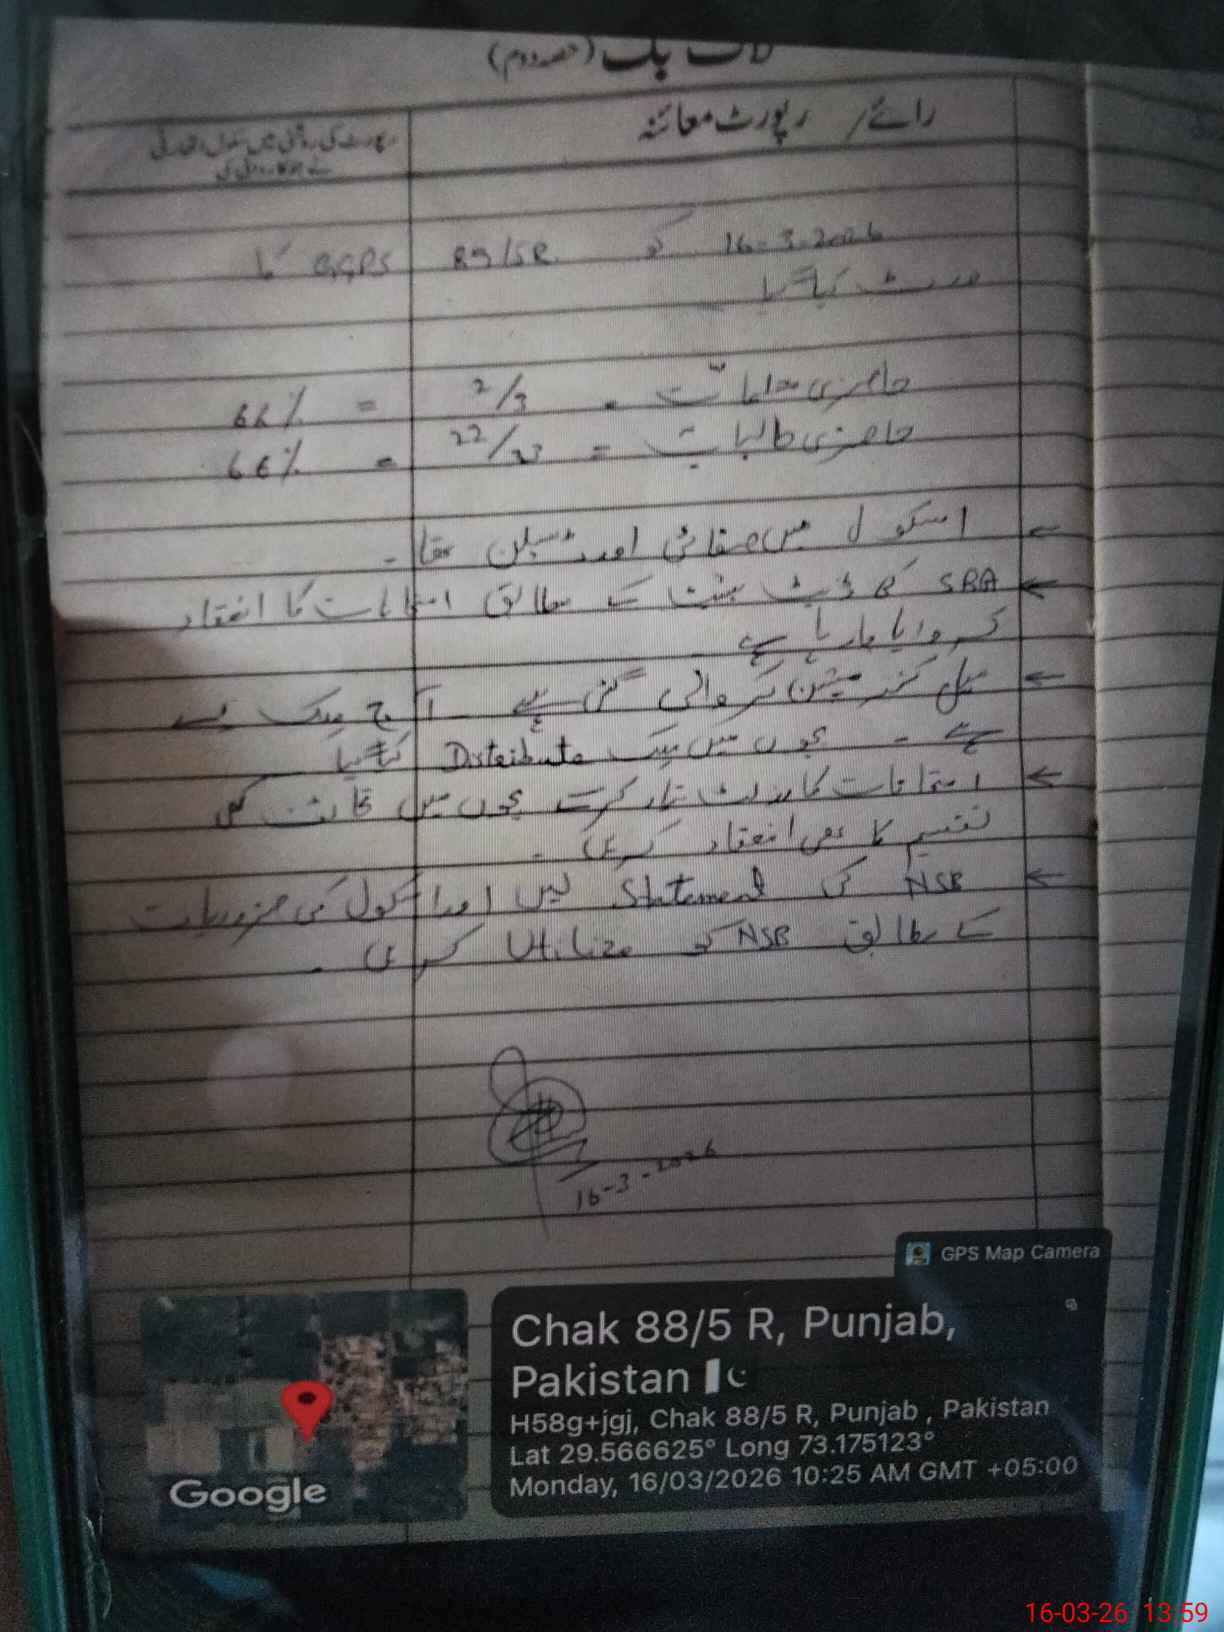 لاگ بک (حصہ دوم)
رائے / رپورٹ معائنہ
رپورٹ کی روشنی میں سکول اتھارٹی
نے جو کارروائی کی
16-3-2026 کو 89/5R GGPS کا
وزٹ کیا گیا
حاضری معلمات = 2/3 = 66%
حاضری طالبات = 22/33 = 66%
← اسکول میں صفائی اور ڈسپلن تھا۔
← SBA کی ڈیٹ شیٹ کے مطابق امتحانات کا انعقاد
کروایا جا رہا ہے
← میل کنزمپشن کروائی گئی ہے۔ آج ملک
ہے۔ بچوں میں ملک Distribute کیا گیا
← امتحانات کا رزلٹ تیار کرکے بچوں میں کی
تقسیم کا بھی انعقاد کریں۔
← NSB کی Statement لیں اور سکول کی ضروریات
کے مطابق NSB کو Utilize کریں۔
16-3-2026
GPS Map Camera
Chak 88/5 R, Punjab,
Pakistan
H58g+jgj, Chak 88/5 R, Punjab , Pakistan
Lat 29.566625° Long 73.175123°
Monday, 16/03/2026 10:25 AM GMT +05:00
Google
16-03-26 13:59